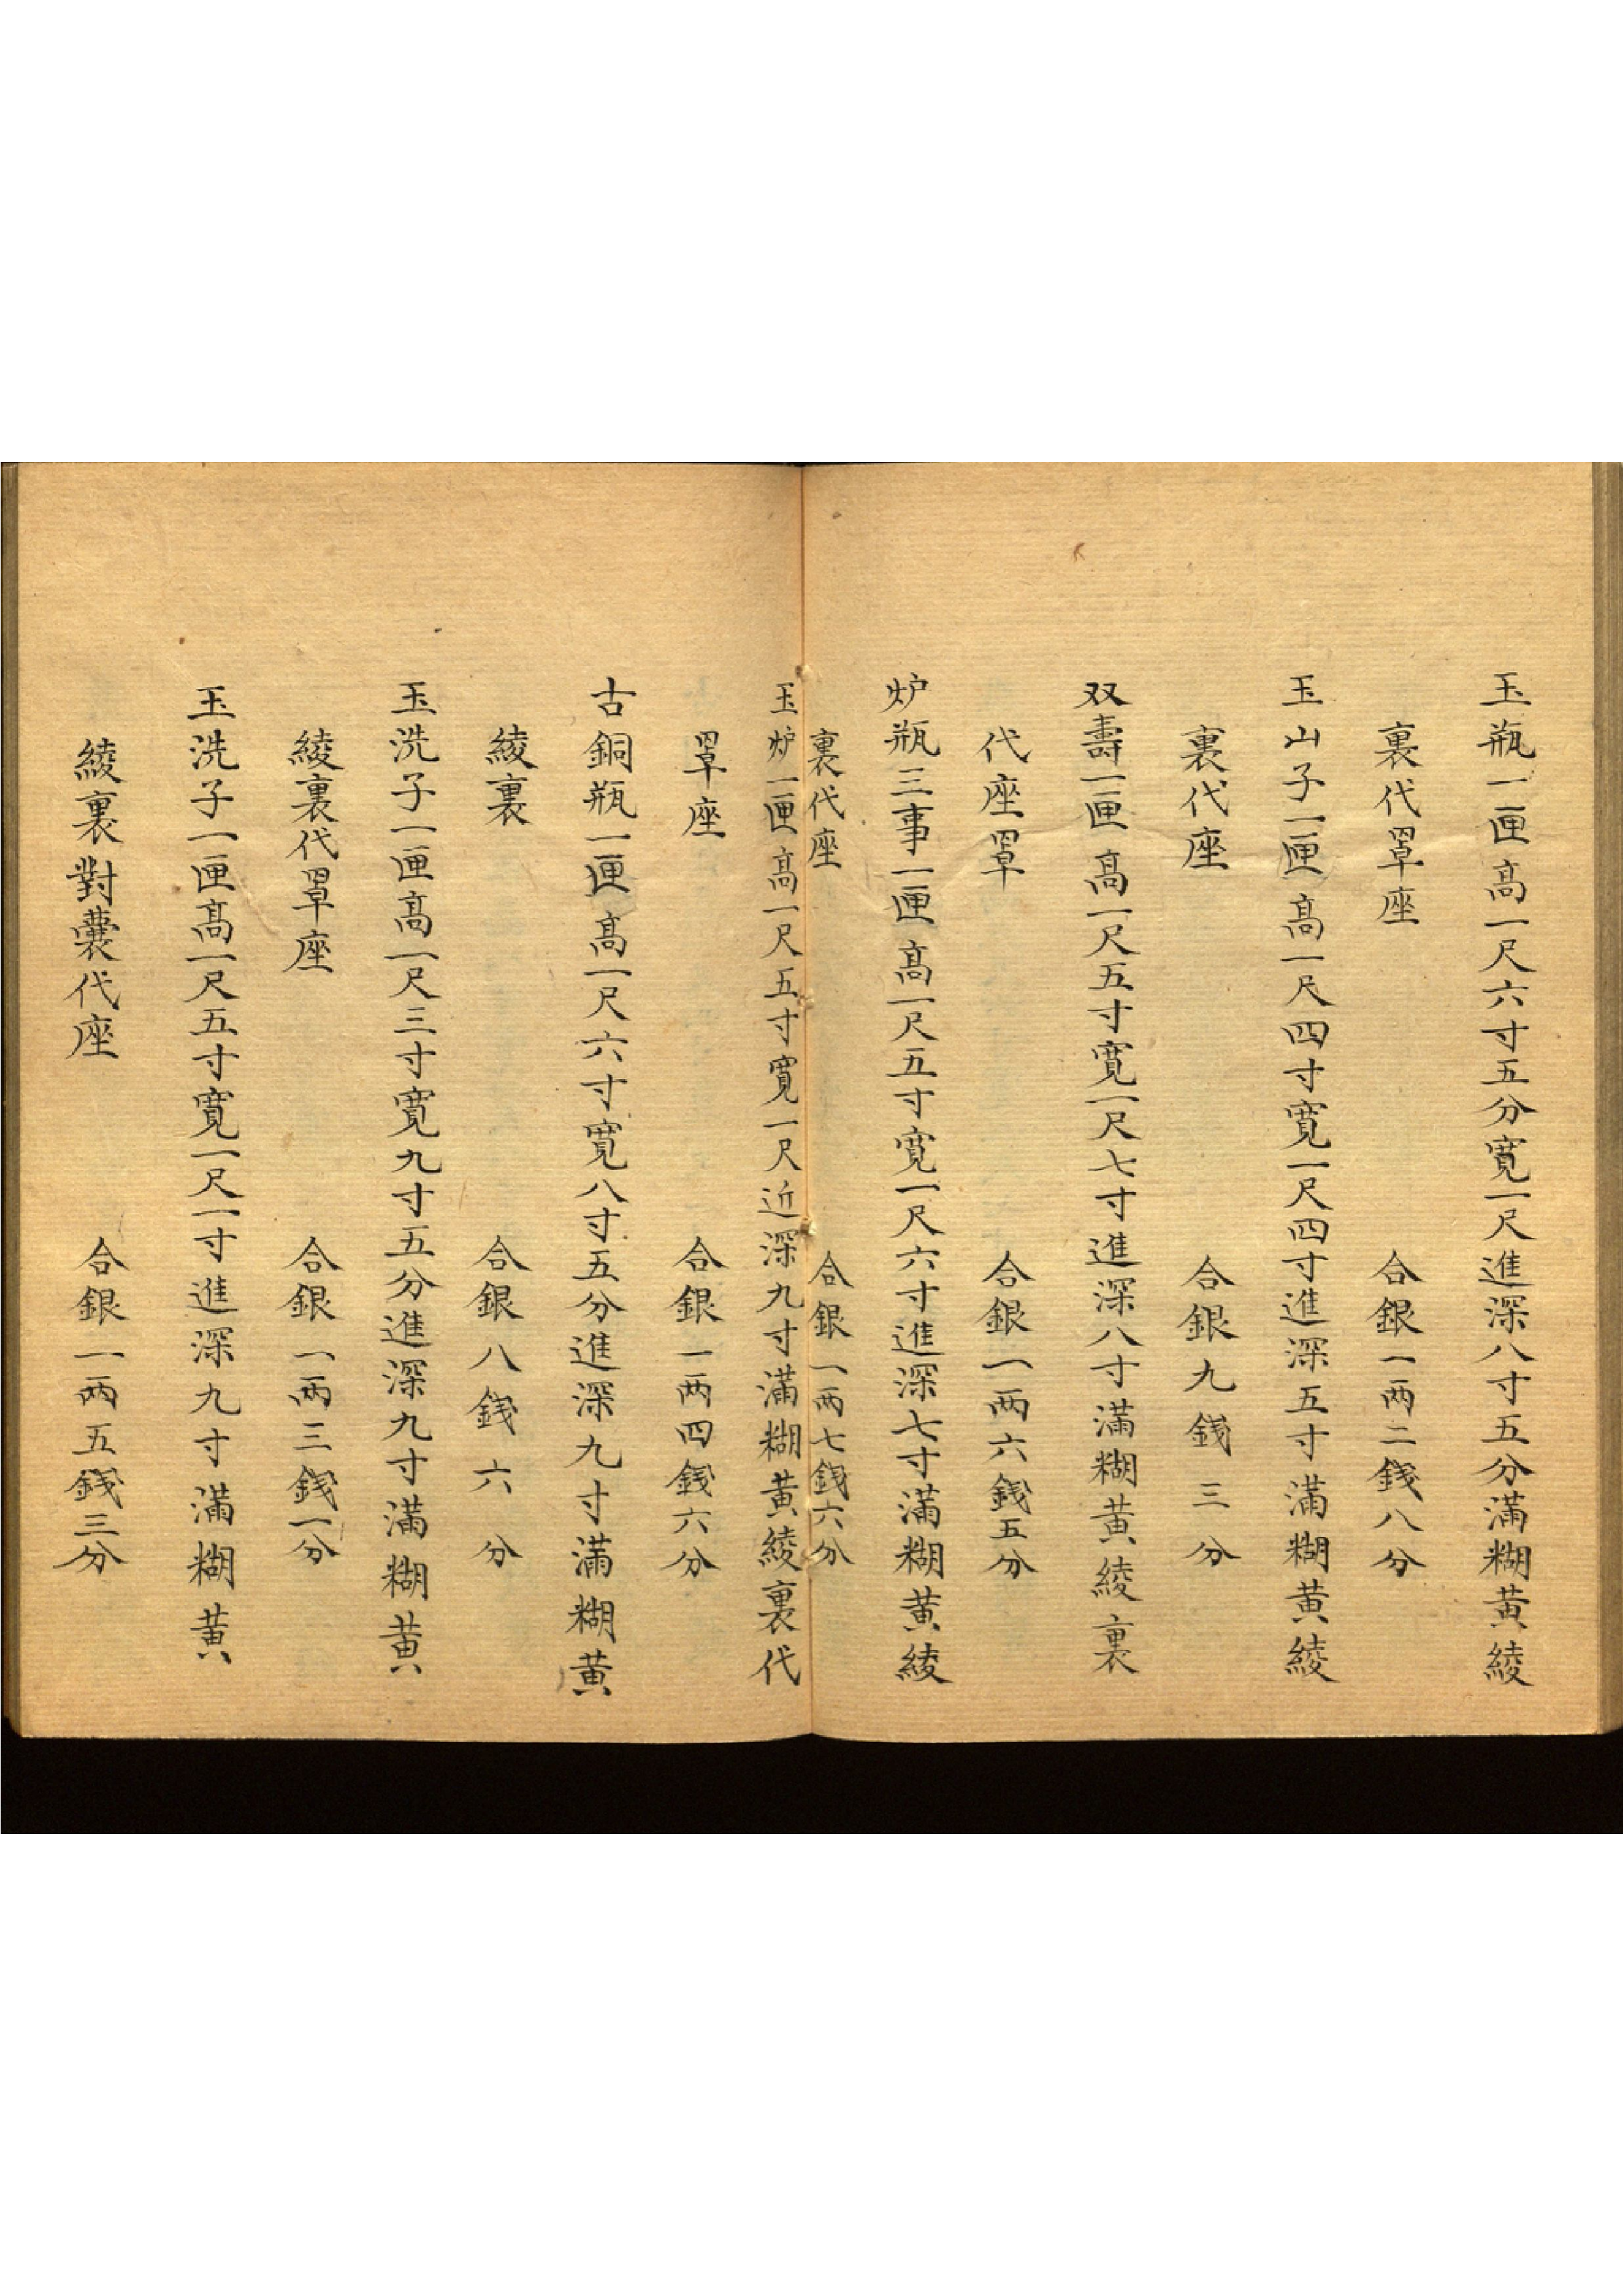 玉瓶一匣高一尺六寸五分寬一尺進深八寸五分滿糊黃綾
裏代罩座 合銀一兩二錢八分
玉山子一匣高一尺四寸寬一尺四寸進深五寸滿糊黃綾
裏代座 合銀九錢三分
双壽一匣高一尺五寸寬一尺七寸進深八寸滿糊黃綾裏
代座罩 合銀一兩六錢五分
炉瓶三事一匣高一尺五寸寬一尺六寸進深七寸滿糊黃綾
裏代座 合銀一兩七錢六分
玉炉一匣高一尺五寸寬一尺近深九寸滿糊黃綾裏代
罩座 合銀一兩四錢六分
古銅瓶一匣高一尺六寸寬八寸五分進深九寸滿糊黃
綾裏 合銀八錢六分
玉洗子一匣高一尺三寸寬九寸五分進深九寸滿糊黃
綾裏代罩座 合銀一兩三錢一分
玉洗子一匣高一尺五寸寬一尺一寸進深九寸滿糊黃
綾裏對囊代座 合銀一兩五錢三分